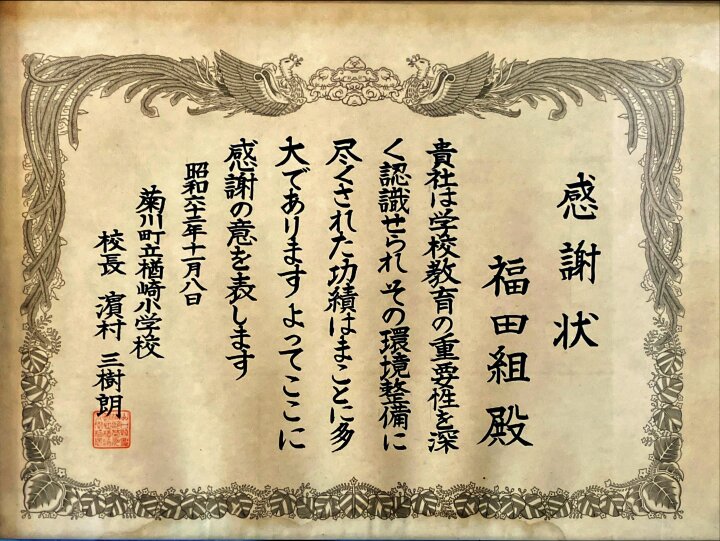 感謝状
福田組 殿
貴社は学校教育の重要性を深
く認識せられ その環境整備に
尽くされた功績はまことに多
大であります よってここに
感謝の意を表します
昭和六十二年十一月八日
菊川町立楢崎小学校
校長 濵村 三樹朗